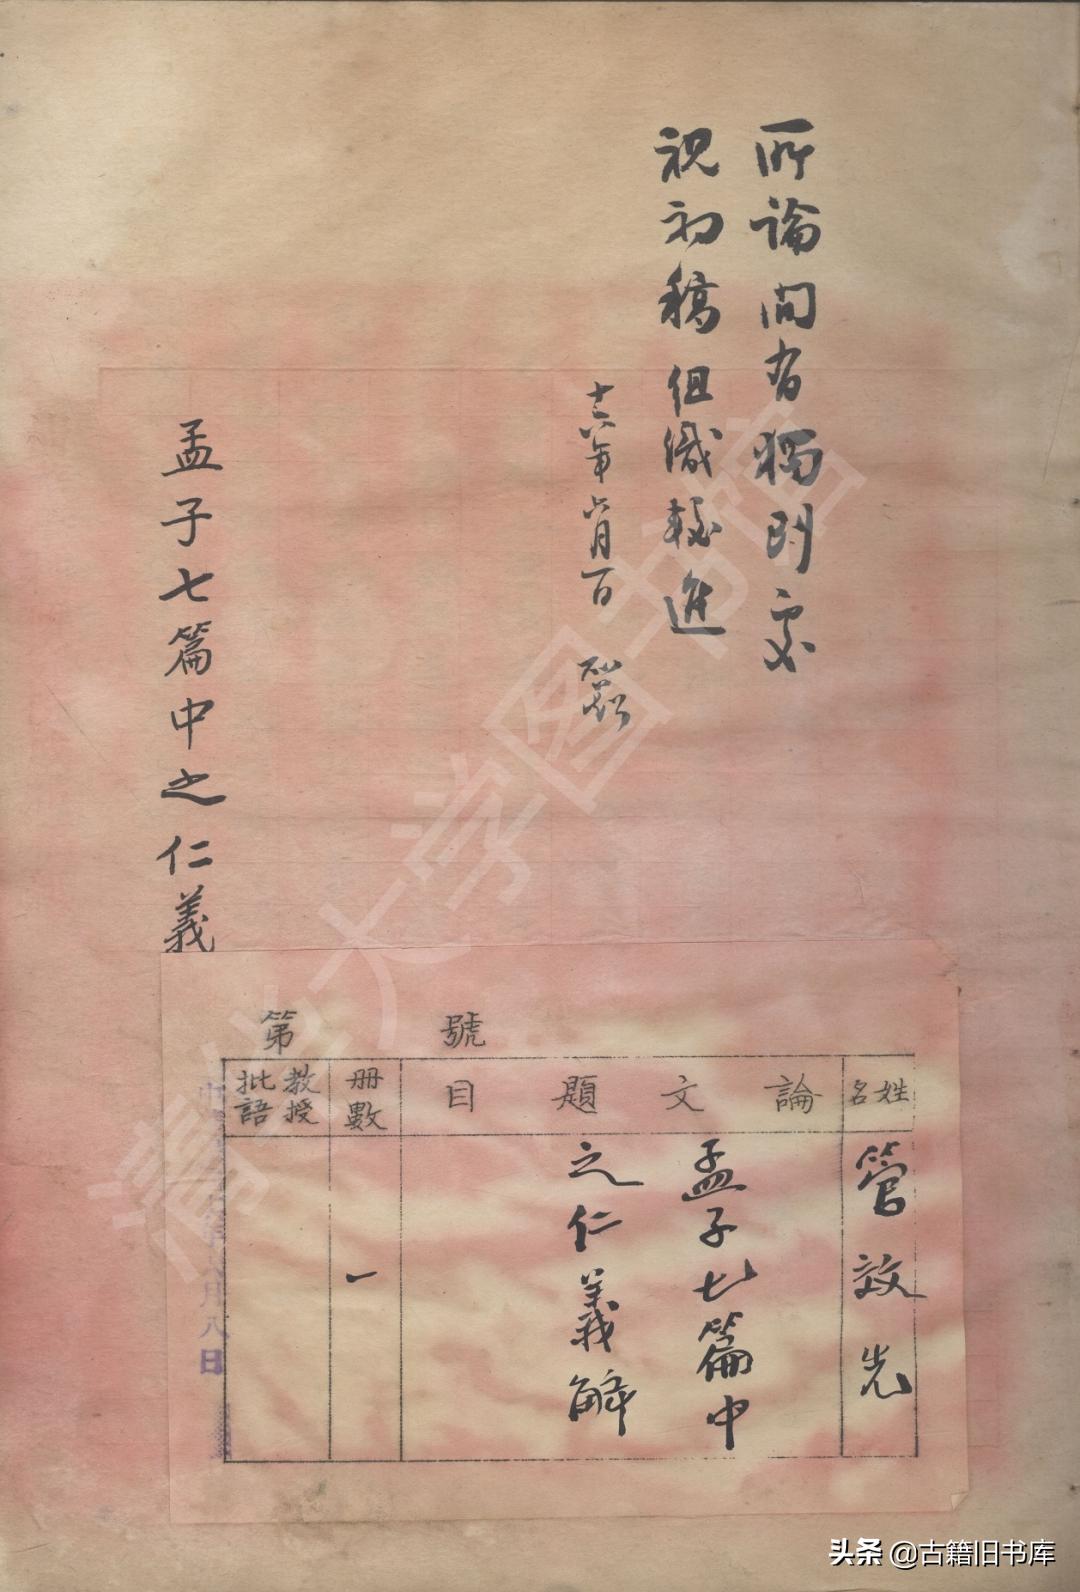 所論間有獨到處
視初稿組織較進
十六年六月一日
孟子七篇中之仁義
第 號
姓名
論文題目
冊數
教授批語
管效先
孟子七篇中
之仁義解
一
六月八日
清华大学图书馆
头条 @古籍旧书库